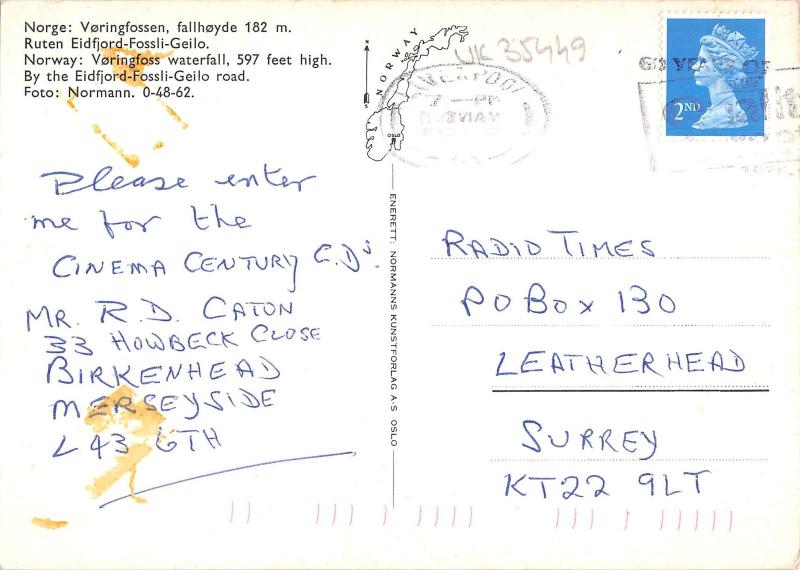 Norge: Vøringfossen, fallhøyde 182 m.
Ruten Eidfjord-Fossli-Geilo.
Norway: Vøringfoss waterfall, 597 feet high.
By the Eidfjord-Fossli-Geilo road.
Foto: Normann. 0-48-62.
NORWAY
OSLO
UK 35449
LIVERPOOL
MAY
60 YEARS OF
2ND
Please enter
me for the
CINEMA CENTURY C.D's.
MR. R.D. CATON
33 HOWBECK CLOSE
BIRKENHEAD
MERSEYSIDE
L43 6TH
ENERETT: NORMANNS KUNSTFORLAG A-S OSLO
RADIO TIMES
PO BOX 130
LEATHERHEAD
SURREY
KT22 9LT